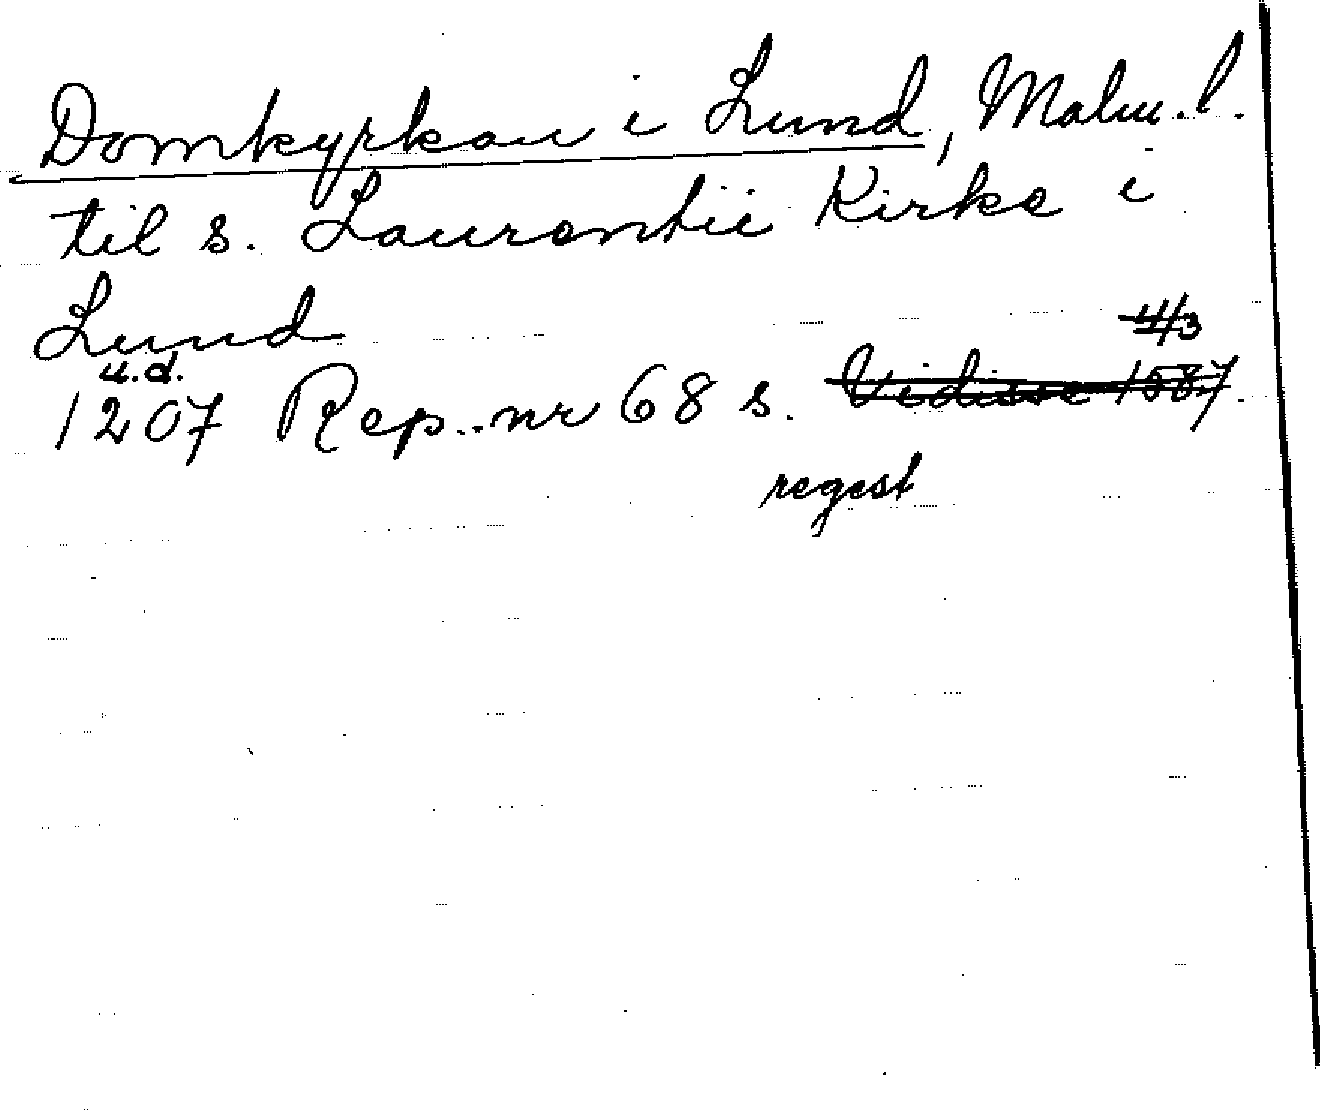 Domkyrkan i Lund, Malm. l.
til s. Laurentii Kirke i
Lund
u.d.
4/3
1207 Rep. nr 68 s. Vidisse 1587.
regest